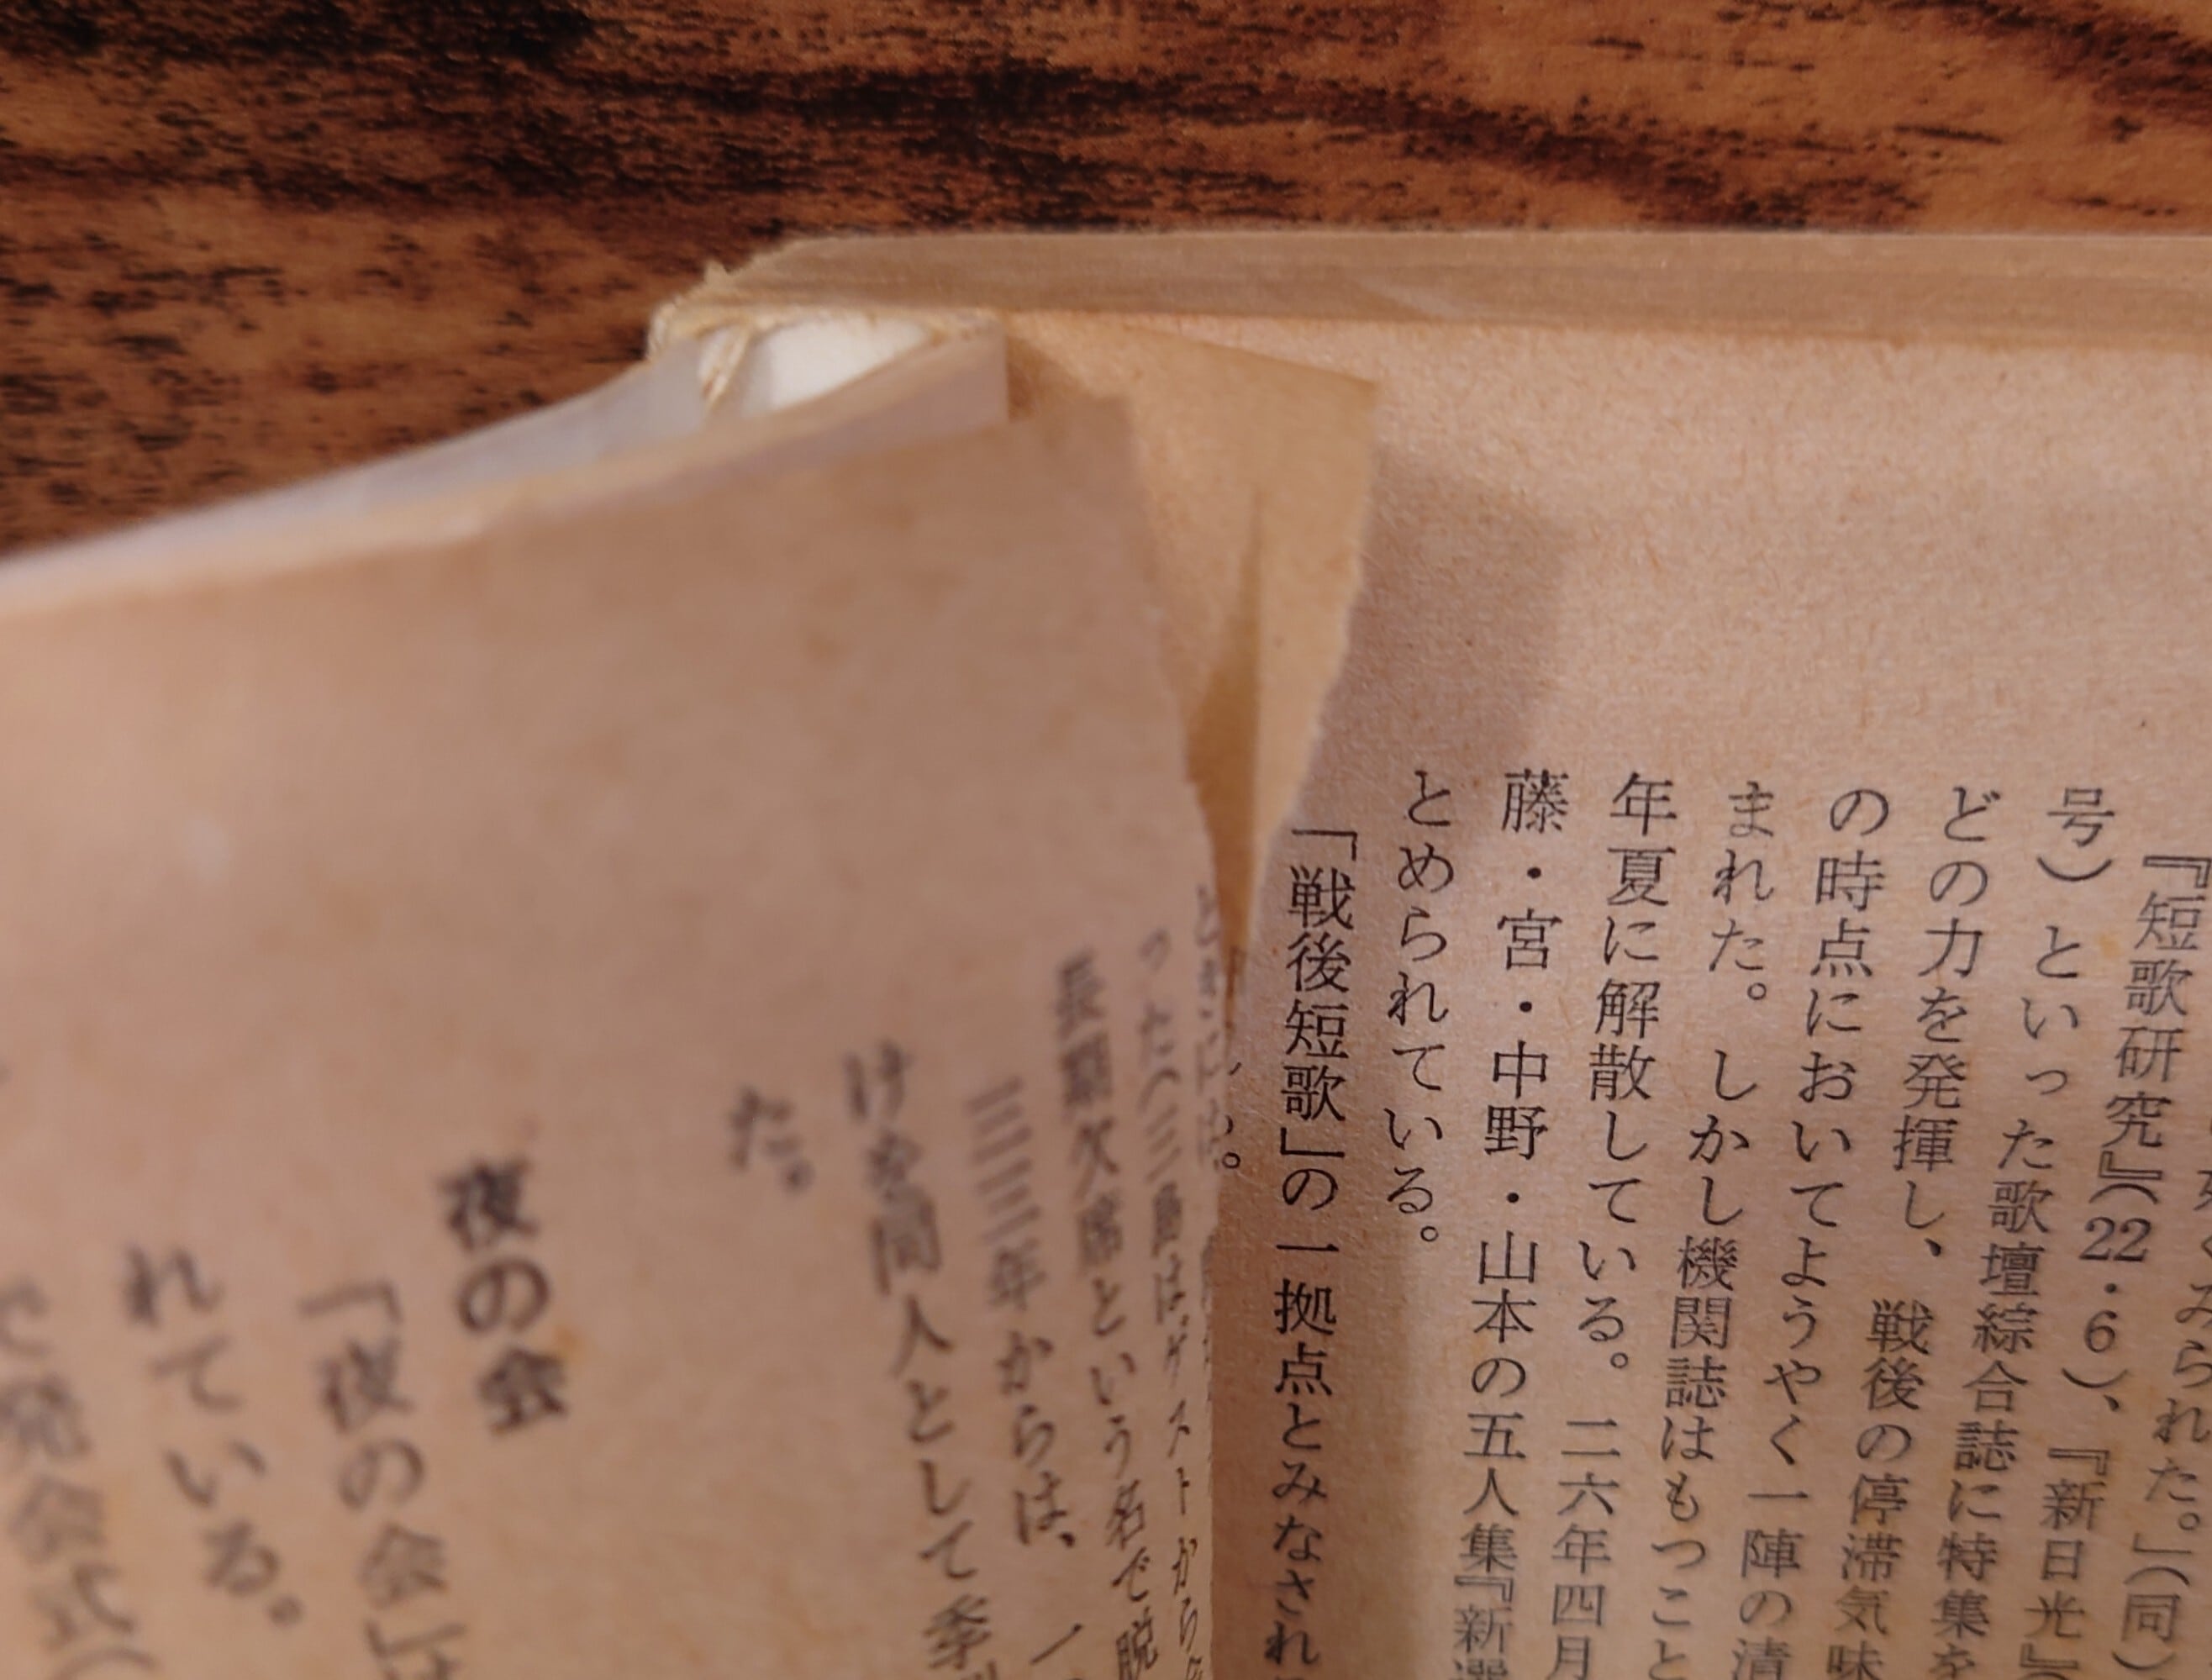 みられた。」(同)
『短歌研究』(22・6)、『新日光』
号)といった歌壇綜合誌に特集を
どの力を発揮し、戦後の停滞気味
の時点においてようやく一陣の清
まれた。しかし機関誌はもつこと
年夏に解散している。二六年四月
藤・宮・中野・山本の五人集『新選
とめられている。
「戦後短歌」の一拠点とみなされ
った(三島は、ゲストから
長期欠席という名で脱
三三年からは、
けを同人として季
た。
夜の会
「夜の会」は
れている。
発会式(